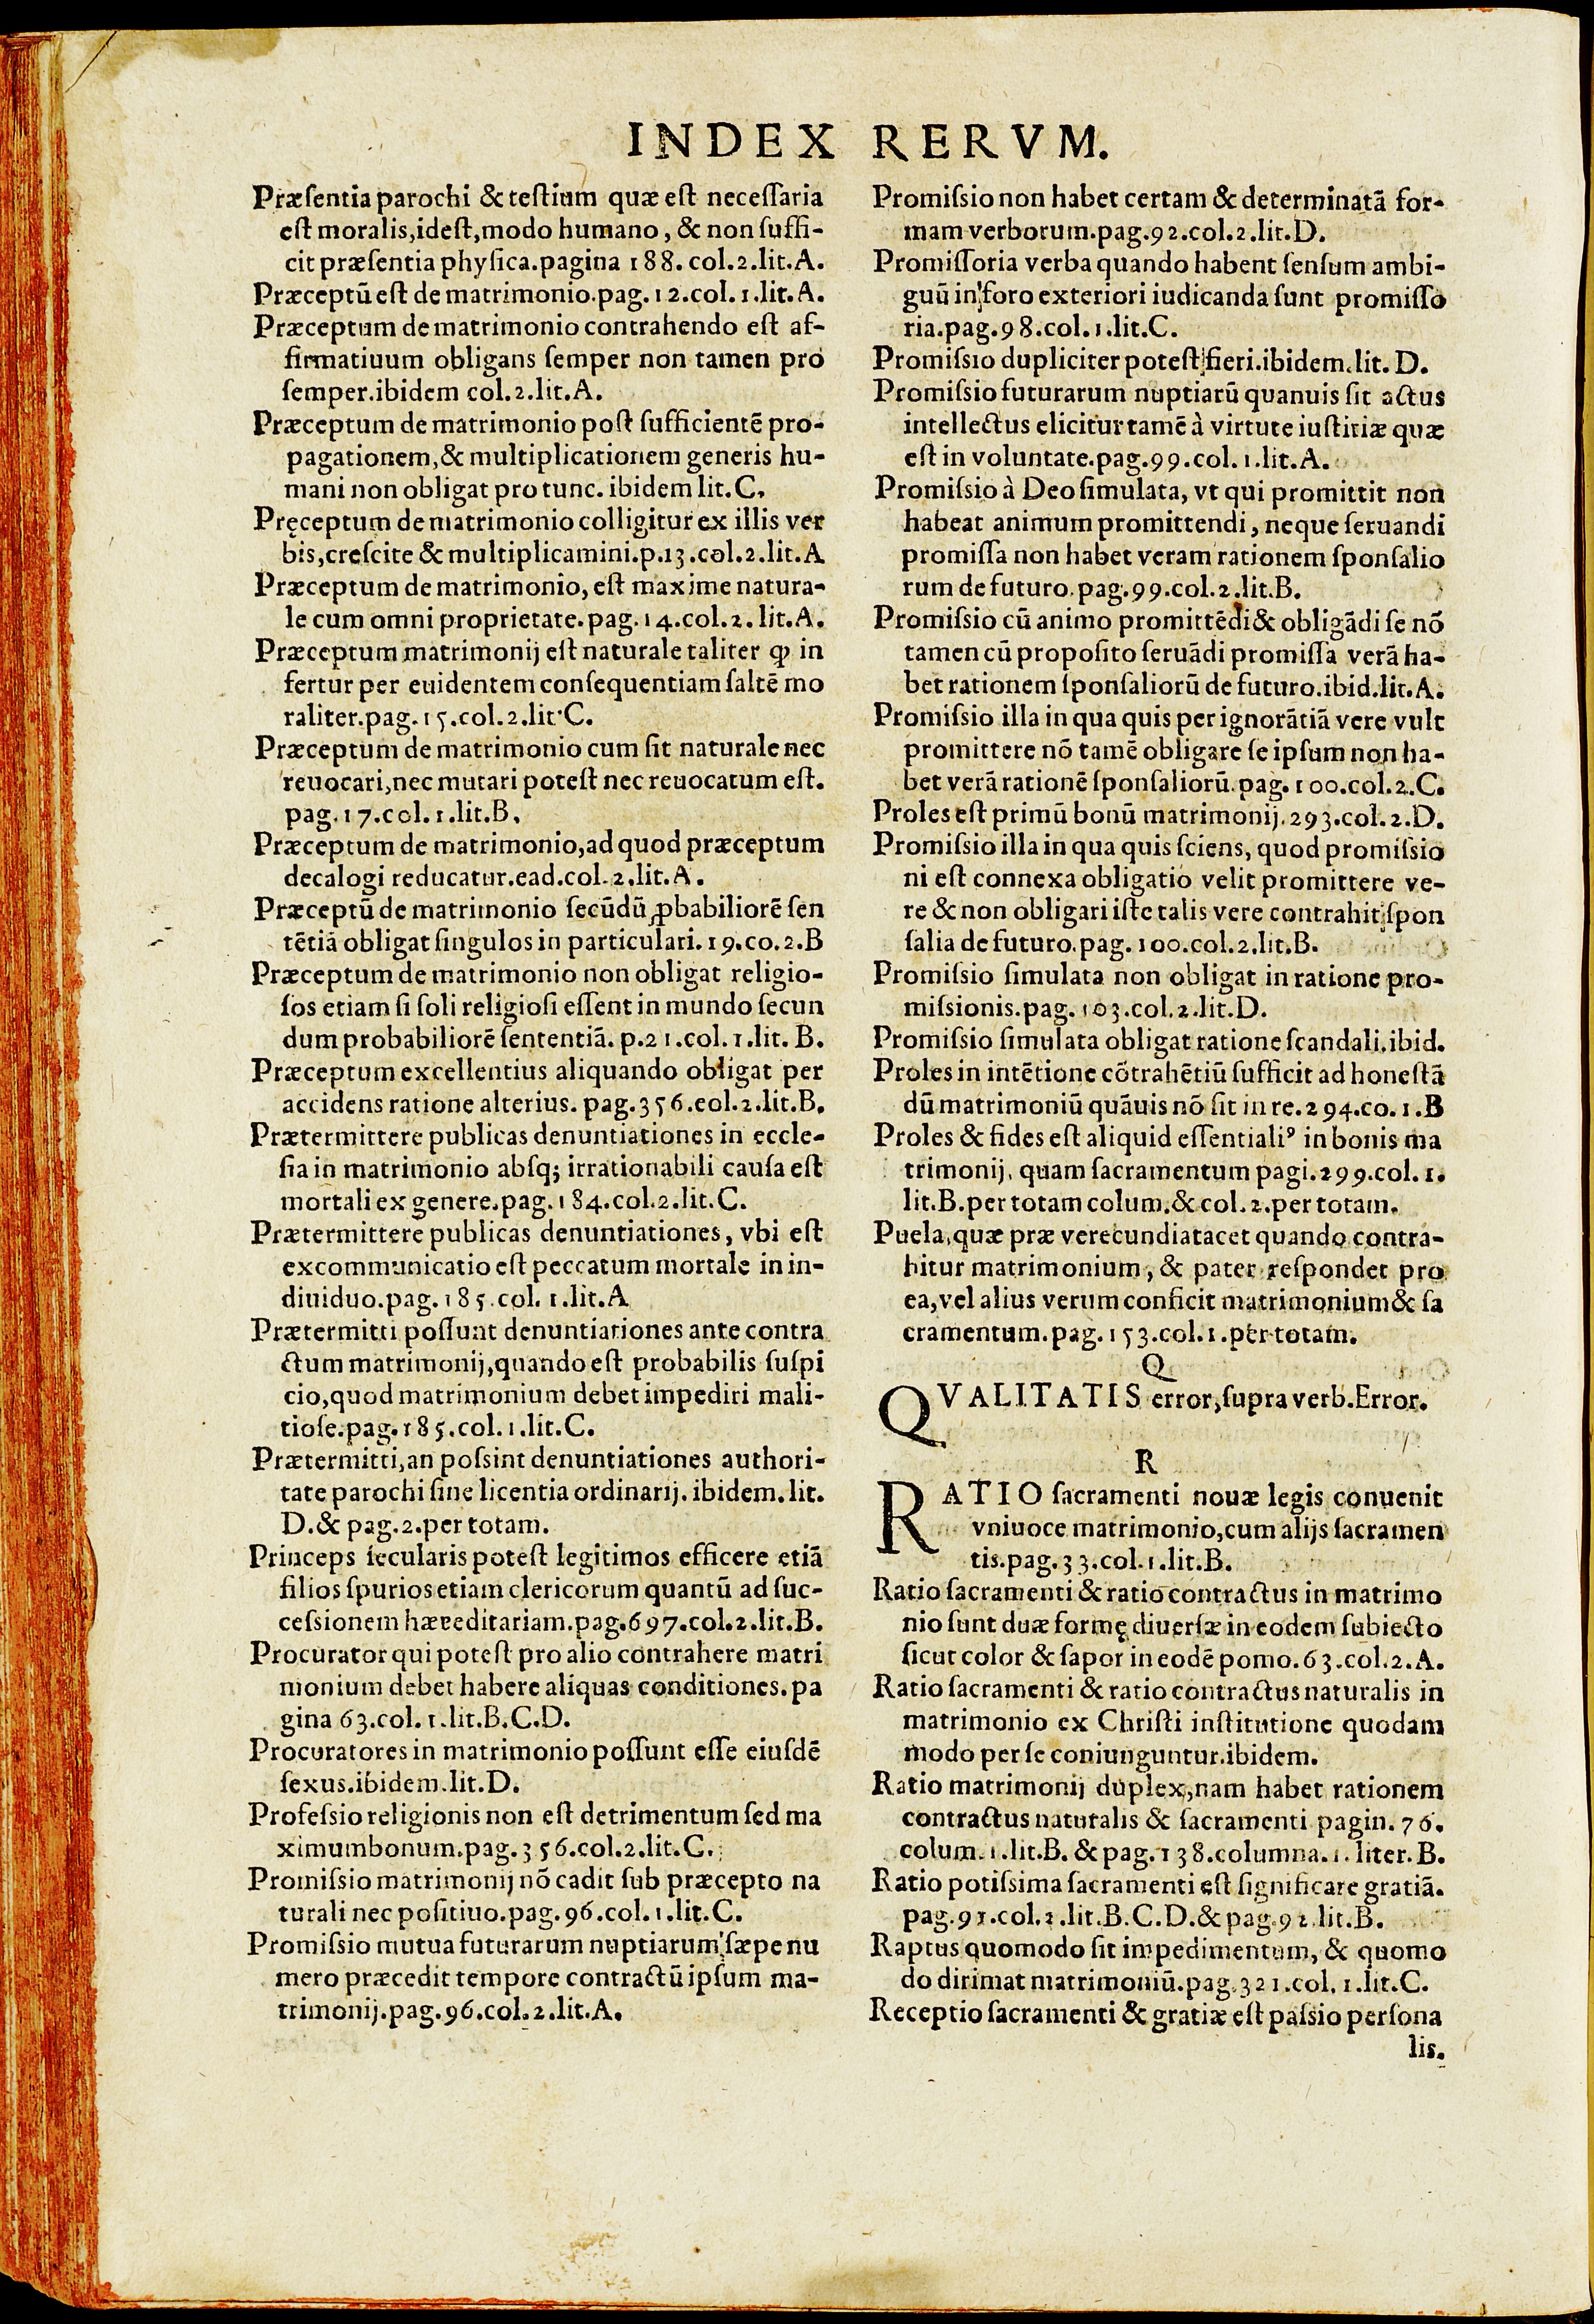 INDEX RERVM.
Præſentia parochi & teſtium quæ eſt neceſſaria
eſt moralis, ideſt, modo humano, & non ſuffi-
cit præſentia phyſica. pagina 188. col. 2. lit. A.
Præceptū eſt de matrimonio. pag. 12. col. 1. lit. A.
Præceptum de matrimonio contrahendo eſt af-
firmatiuum obligans ſemper non tamen pro
ſemper. ibidem col. 2. lit. A.
Præceptum de matrimonio poſt ſufficientē pro-
pagationem, & multiplicationem generis hu-
mani non obligat pro tunc. ibidem lit. C.
Pręceptum de matrimonio colligitur ex illis ver
bis, creſcite & multiplicamini. p. 13. col. 2. lit. A
Præceptum de matrimonio, eſt maxime natura-
le cum omni proprietate. pag. 14. col. 2. lit. A.
Præceptum matrimonij eſt naturale taliter ꝙ in
fertur per euidentem conſequentiam ſaltē mo
raliter. pag. 15. col. 2. lit. C.
Præceptum de matrimonio cum ſit naturale nec
reuocari, nec mutari poteſt nec reuocatum eſt.
pag. 17. col. 1. lit. B.
Præceptum de matrimonio, ad quod præceptum
decalogi reducatur. ead. col. 2. lit. A.
Præceptū de matrimonio ſecūdū ꝓbabiliorē ſen
tētiā obligat ſingulos in particulari. 19. co. 2. B
Præceptum de matrimonio non obligat religio-
ſos etiam ſi ſoli religioſi eſſent in mundo ſecun
dum probabiliorē ſententiā. p. 21. col. 1. lit. B.
Præceptum excellentius aliquando obligat per
accidens ratione alterius. pag. 356. eol. 2. lit. B.
Prætermittere publicas denuntiationes in eccle-
ſia in matrimonio abſq; irrationabili cauſa eſt
mortali ex genere. pag. 184. col. 2. lit. C.
Prætermittere publicas denuntiationes, vbi eſt
excommunicatio eſt peccatum mortale in in-
diuiduo. pag. 185. col. 1. lit. A
Prætermitti poſſunt denuntiationes ante contra
ctum matrimonij, quando eſt probabilis ſuſpi
cio, quod matrimonium debet impediri mali-
tioſe. pag. 185. col. 1. lit. C.
Prætermitti, an poſsint denuntiationes authori-
tate parochi ſine licentia ordinarij. ibidem. lit.
D. & pag. 2. per totam.
Princeps ſecularis poteſt legitimos efficere etiā
filios ſpurios etiam clericorum quantū ad ſuc-
ceſsionem hæreditariam. pag. 697. col. 2. lit. B.
Procurator qui poteſt pro alio contrahere matri
monium debet habere aliquas conditiones. pa
gina 63. col. 1. lit. B. C. D.
Procuratores in matrimonio poſſunt eſſe eiuſdē
ſexus. ibidem. lit. D.
Profeſsio religionis non eſt detrimentum ſed ma
ximum bonum. pag. 356. col. 2. lit. C.
Promiſsio matrimonij nō cadit ſub præcepto na
turali nec poſitiuo. pag. 96. col. 1. lit. C.
Promiſsio mutua futurarum nuptiarum ſæpe nu
mero præcedit tempore contractū ipſum ma-
trimonij. pag. 96. col. 2. lit. A.
Promiſsio non habet certam & determinatā for-
mam verborum. pag. 92. col. 2. lit. D.
Promiſſoria verba quando habent ſenſum ambi-
guū in foro exteriori iudicanda ſunt promiſſo
ria. pag. 98. col. 1. lit. C.
Promiſsio dupliciter poteſt fieri. ibidem. lit. D.
Promiſsio futurarum nuptiarū quanuis ſit actus
intellectus elicitur tamē à virtute iuſtitiæ quæ
eſt in voluntate. pag. 99. col. 1. lit. A.
Promiſsio à Deo ſimulata, vt qui promittit non
habeat animum promittendi, neque ſeruandi
promiſſa non habet veram rationem ſponſalio
rum de futuro. pag. 99. col. 2. lit. B.
Promiſsio cū animo promittēdi & obligādi ſe nō
tamen cū propoſito ſeruādi promiſſa verā ha-
bet rationem ſponſaliorū de futuro. ibid. lit. A.
Promiſsio illa in qua quis per ignorātiā vere vult
promittere nō tamē obligare ſe ipſum non ha-
bet verā rationē ſponſaliorū. pag. 100. col. 2. C.
Proles eſt primū bonū matrimonij. 293. col. 2. D.
Promiſsio illa in qua quis ſciens, quod promiſsio
ni eſt connexa obligatio velit promittere ve-
re & non obligari iſte talis vere contrahit ſpon
ſalia de futuro. pag. 100. col. 2. lit. B.
Promiſsio ſimulata non obligat in ratione pro-
miſsionis. pag. 103. col. 2. lit. D.
Promiſsio ſimulata obligat ratione ſcandali. ibid.
Proles in intētione cōtrahētiū ſufficit ad honeſtā
dū matrimoniū quāuis nō ſit in re. 294. co. 1. B
Proles & fides eſt aliquid eſſentialiꝰ in bonis ma
trimonij, quam ſacramentum pagi. 299. col. 1.
lit. B. per totam colum. & col. 2. per totam.
Puela, quæ præ verecundia tacet quando contra-
hitur matrimonium, & pater reſpondet pro
ea, vel alius verum conficit matrimonium & ſa
cramentum. pag. 153. col. 1. per totam.
Q
QVALITATIS error, ſupra verb. Error.
R
RATIO ſacramenti nouæ legis conuenit
vniuoce matrimonio, cum alijs ſacramen
tis. pag. 33. col. 1. lit. B.
Ratio ſacramenti & ratio contractus in matrimo
nio ſunt duæ formę diuerſæ in eodem ſubiecto
ſicut color & ſapor in eodē pomo. 63. col. 2. A.
Ratio ſacramenti & ratio contractus naturalis in
matrimonio ex Chriſti inſtitutione quodam
modo per ſe coniunguntur. ibidem.
Ratio matrimonij duplex, nam habet rationem
contractus naturalis & ſacramenti pagin. 76.
colum. 1. lit. B. & pag. 138. columna. 1. liter. B.
Ratio potiſsima ſacramenti eſt ſignificare gratiā.
pag. 91. col. 2. lit. B. C. D. & pag. 92. lit. B.
Raptus quomodo ſit impedimentum, & quomo
do dirimat matrimoniū. pag. 321. col. 1. lit. C.
Receptio ſacramenti & gratiæ eſt paſsio perſona
lis.